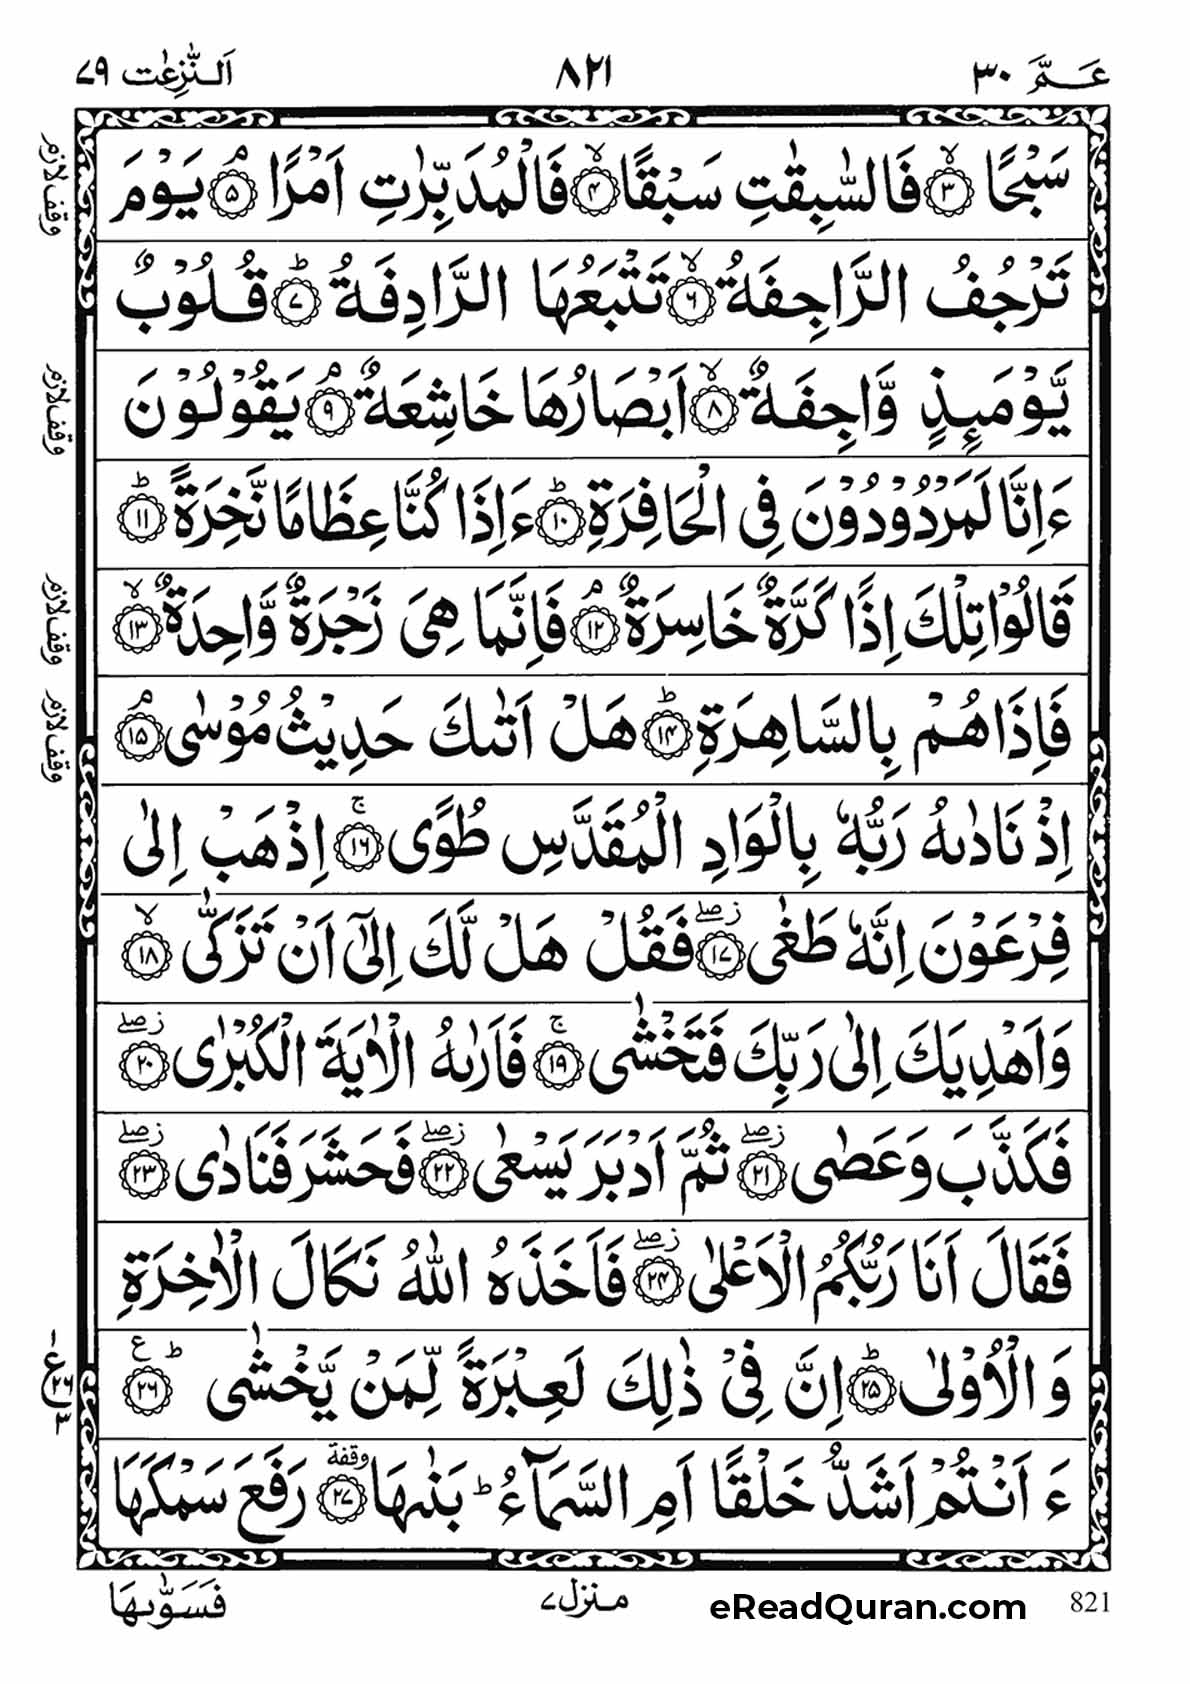 عَـمَّ ٣٠
٨٢١
اَلنّٰزِعٰت ٧٩
سَبْحًا ۙ﴿٣﴾ فَالسّٰبِقٰتِ سَبْقًا ۙ﴿٤﴾ فَالْمُدَبِّرٰتِ اَمْرًا ۘ﴿٥﴾ يَوْمَ
وقف لازم
تَرْجُفُ الرَّاجِفَةُ ۙ﴿٦﴾ تَتْبَعُهَا الرَّادِفَةُ ؕ﴿٧﴾ قُلُوْبٌ
يَّوْمَىِٕذٍ وَّاجِفَةٌ ۙ﴿٨﴾ اَبْصَارُهَا خَاشِعَةٌ ۘ﴿٩﴾ يَقُوْلُوْنَ
وقف لازم
ءَاِنَّا لَمَرْدُوْدُوْنَ فِى الْحَافِرَةِ ؕ﴿١٠﴾ ءَاِذَا كُنَّا عِظَامًا نَّخِرَةً ؕ﴿١١﴾
قَالُوْا تِلْكَ اِذًا كَرَّةٌ خَاسِرَةٌ ۘ﴿١٢﴾ فَاِنَّمَا هِىَ زَجْرَةٌ وَّاحِدَةٌ ۙ﴿١٣﴾
وقف لازم
فَاِذَا هُمْ بِالسَّاهِرَةِ ؕ﴿١٤﴾ هَلْ اَتٰىكَ حَدِيْثُ مُوْسٰى ۘ﴿١٥﴾
وقف لازم
اِذْ نَادٰىهُ رَبُّهٗ بِالْوَادِ الْمُقَدَّسِ طُوًى ۚ﴿١٦﴾ اِذْهَبْ اِلٰى
فِرْعَوْنَ اِنَّهٗ طَغٰى ۖز﴿١٧﴾ فَقُلْ هَلْ لَّكَ اِلٰٓى اَنْ تَزَكّٰى ۙ﴿١٨﴾
وَاَهْدِيَكَ اِلٰى رَبِّكَ فَتَخْشٰى ۚ﴿١٩﴾ فَاَرٰىهُ الْاٰيَةَ الْكُبْرٰى ۖز﴿٢٠﴾
فَكَذَّبَ وَعَصٰى ۖز﴿٢١﴾ ثُمَّ اَدْبَرَ يَسْعٰى ۖز﴿٢٢﴾ فَحَشَرَ فَنَادٰى ۖز﴿٢٣﴾
فَقَالَ اَنَا رَبُّكُمُ الْاَعْلٰى ۖز﴿٢٤﴾ فَاَخَذَهُ اللّٰهُ نَكَالَ الْاٰخِرَةِ
وَالْاُوْلٰى ؕ﴿٢٥﴾ اِنَّ فِىْ ذٰلِكَ لَعِبْرَةً لِّمَنْ يَّخْشٰى ؕع﴿٢٦﴾
ع ٢٦ ٣
ءَاَنْتُمْ اَشَدُّ خَلْقًا اَمِ السَّمَآءُ ؕ بَنٰىهَا وقفة﴿٢٧﴾ رَفَعَ سَمْكَهَا
فَسَوّٰىهَا
منزل ٧
eReadQuran.com
821